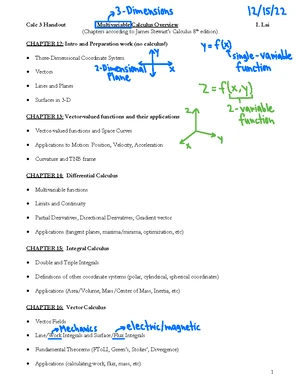 3-Dimensions
12/15/22
Calc 3 Handout
Multivariable Calculus Overview
L. Lai
(Chapters according to James Stewart's Calculus 8th edition)
CHAPTER 12: Intro and Preparation work (no calculus!)
y = f(x)
single-variable
function
• Three-Dimensional Coordinate System
y
x
2-Dimensional
Plane
• Vectors
• Lines and Planes
• Surfaces in 3-D
z = f(x,y)
2-variable
function
CHAPTER 13: Vector-valued functions and their applications
z
y
x
• Vector-valued functions and Space Curves
• Applications to Motion: Position, Velocity, Acceleration
• Curvature and TNB frame
CHAPTER 14: Differential Calculus
• Multivariable functions
• Limits and Continuity
• Partial Derivatives, Directional Derivatives, Gradient vector
• Applications (tangent planes, maxima/minima, optimization, etc)
CHAPTER 15: Integral Calculus
• Double and Triple Integrals
• Definitions of other coordinate systems (polar, cylindrical, spherical coordinates)
• Applications (Area/Volume, Mass/Center of Mass, Inertia, etc)
CHAPTER 16: Vector Calculus
• Vector Fields
Mechanics
electric/magnetic
• Line/Work Integrals and Surface/Flux Integrals
• Fundamental Theorems (FToLI, Green's, Stokes', Divergence)
• Applications (calculating work, flux, mass, etc)
1